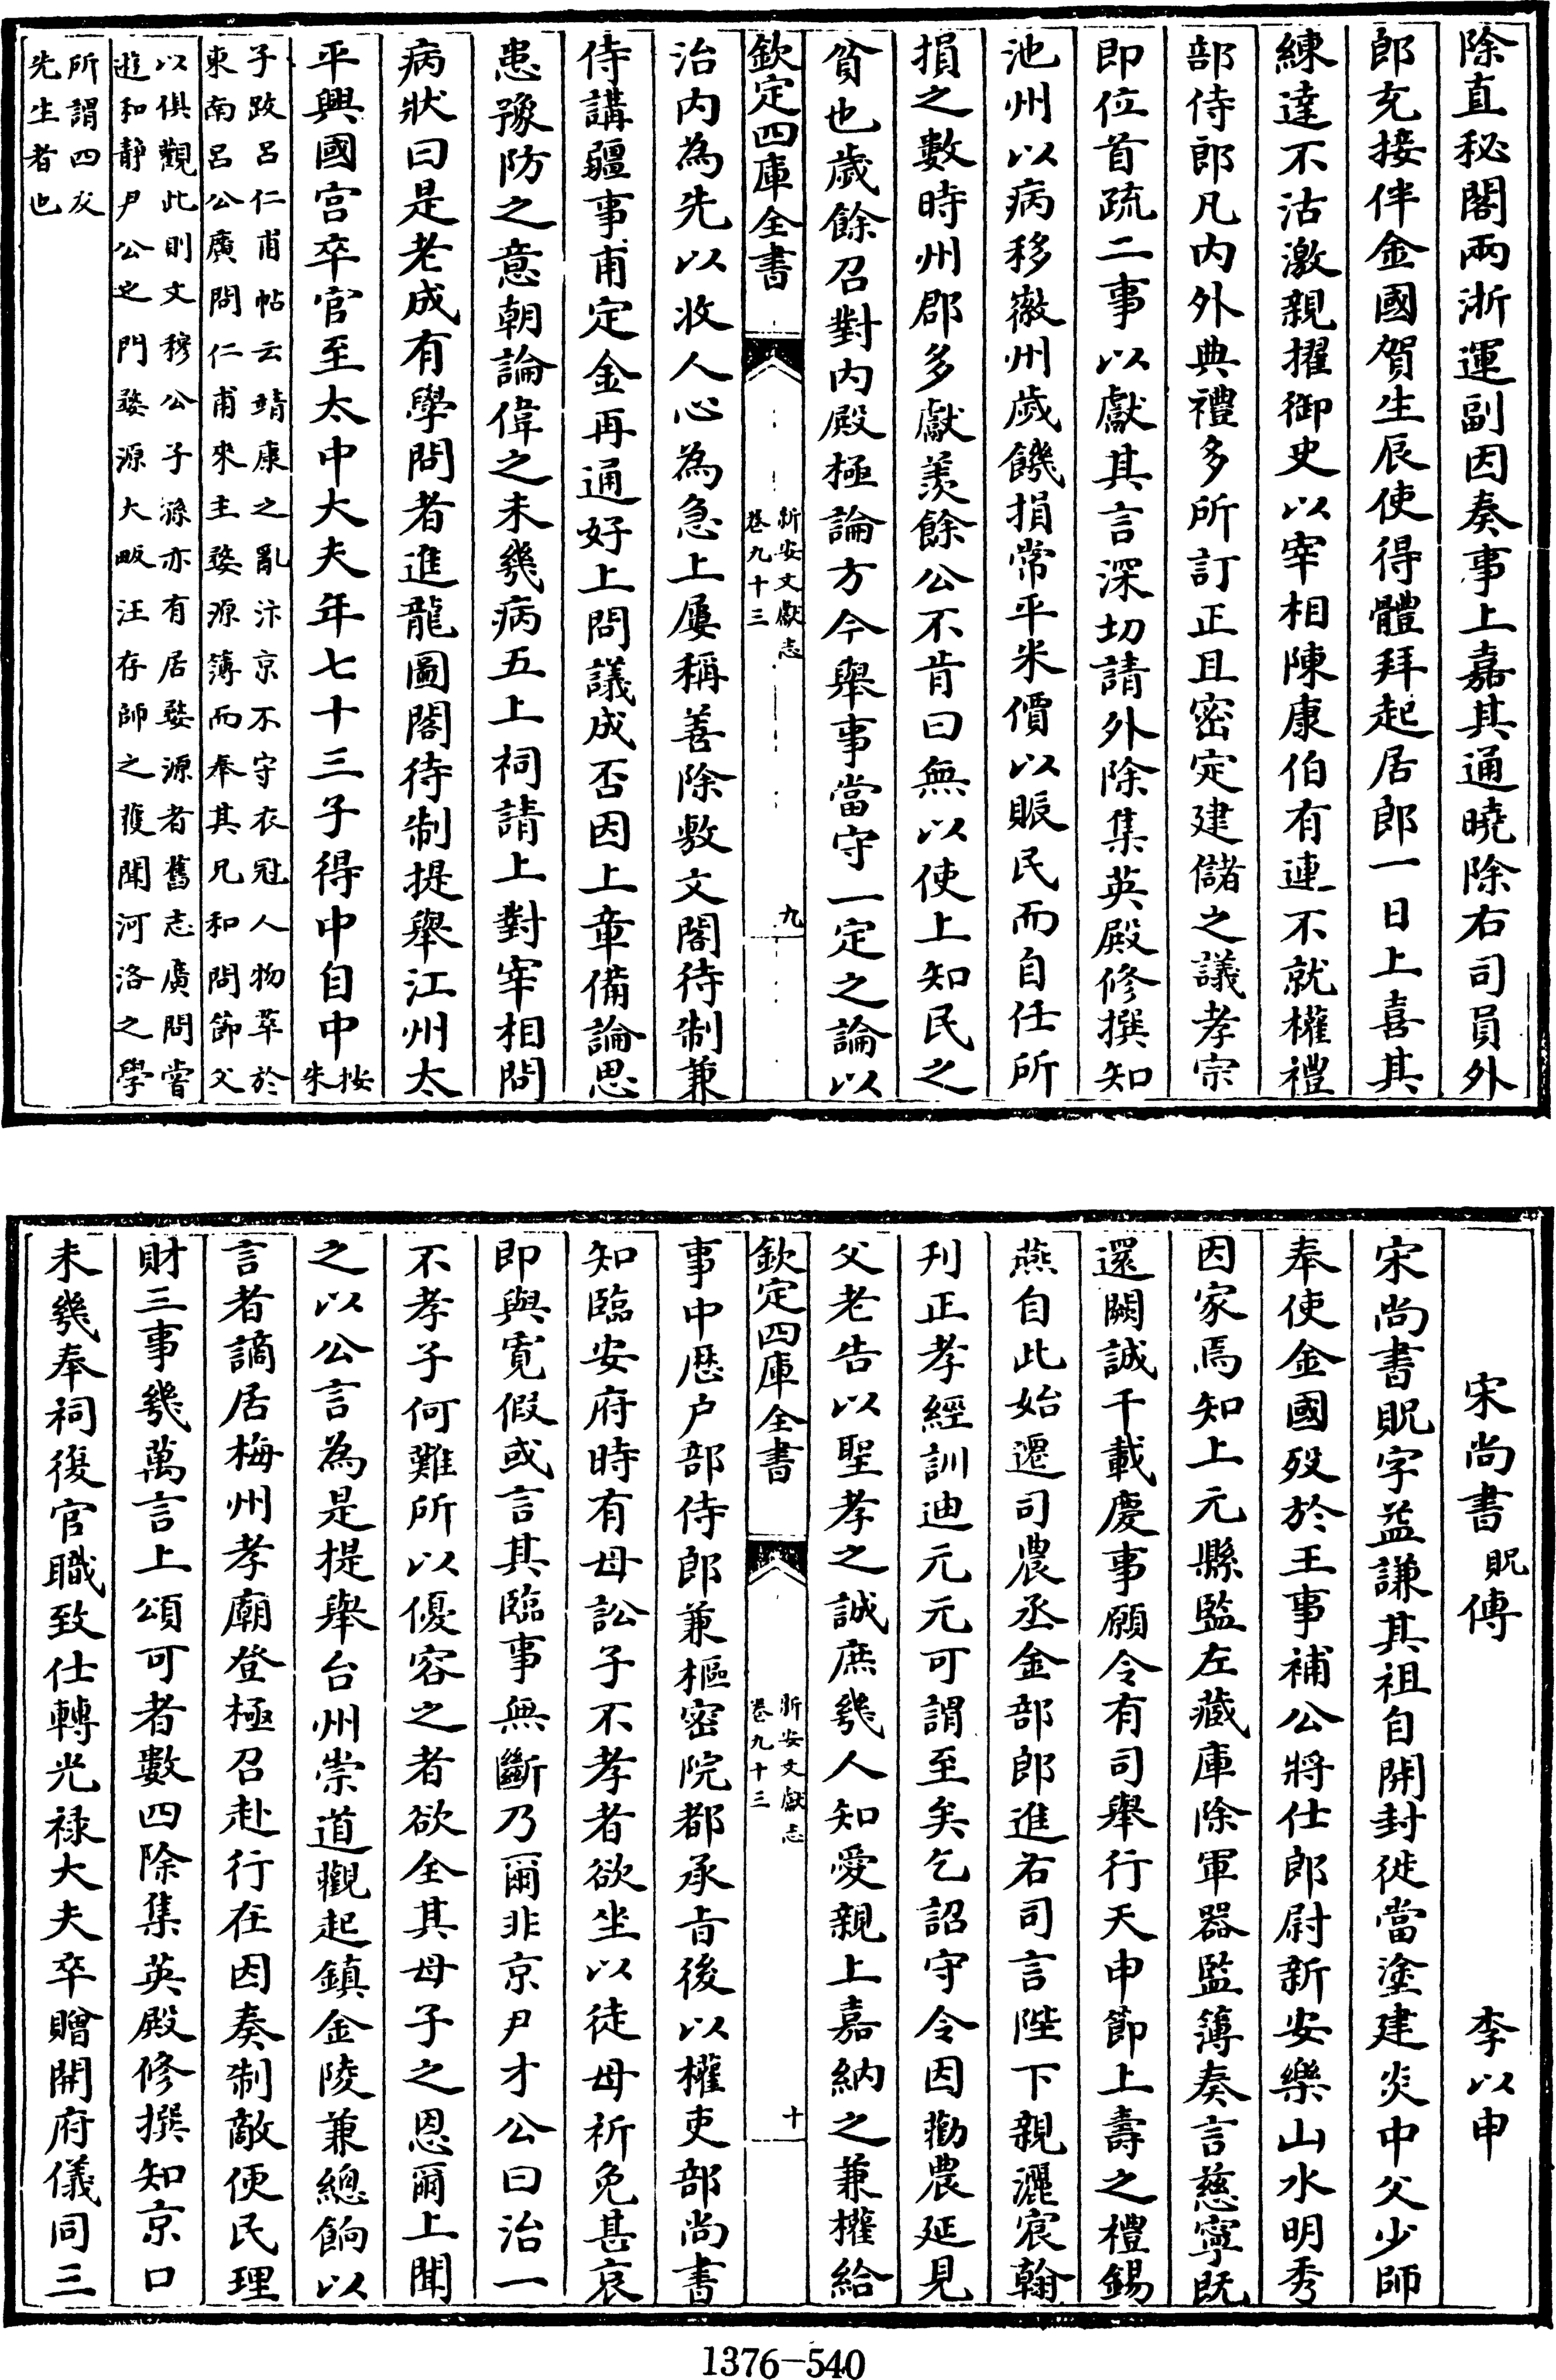 除直秘閣兩浙運副因奏事上嘉其通曉除右司員外
郎充接伴金國賀生辰使得體拜起居郎一日上喜其
練達不沽激親擢御史以宰相陳康伯有連不就權禮
部侍郎凡内外典禮多所訂正且密定建儲之議孝宗
即位首疏二事以獻其言深切請外除集英殿修撰知
池州以病移徽州歲饑損常平米價以賑民而自任所
損之數時州郡多獻羨餘公不肯曰無以使上知民之
貧也歲餘召對内殿極論方今舉事當守一定之論以
欽定四庫全書
新安文獻志
卷九十三
九
治内為先以收人心為急上屢稱善除敷文閣待制兼
侍講疆事甫定金再通好上問議成否因上章備論思
患豫防之意朝論偉之未幾病五上祠請上對宰相問
病狀曰是老成有學問者進龍圖閣待制提舉江州太
平興國宫卒官至太中大夫年七十三子得中自中
按
朱
子跋呂仁甫帖云靖康之亂汴京不守衣冠人物萃於
東南呂公廣問仁甫來主婺源簿而奉其兄和問節父
以俱觀此則文穆公子孫亦有居婺源者舊志廣問嘗
遊和靜尹公之門婺源大畈汪存師之獲聞河洛之學
所謂四友
先生者也
宋尚書貺傳 李以申
宋尚書貺字益謙其祖自開封徙當塗建炎中父少師
奉使金國歿於王事補公將仕郎尉新安樂山水明秀
因家焉知上元縣監左藏庫除軍器監簿奏言慈寧既
還闕誠千載慶事願令有司舉行天申節上壽之禮錫
燕自此始遷司農丞金部郎進右司言陛下親灑宸翰
刋正孝經訓迪元元可謂至矣乞詔守令因勸農延見
父老告以聖孝之誠庶幾人知愛親上嘉納之兼權給
欽定四庫全書
新安文獻志
卷九十三
十
事中歷户部侍郎兼樞密院都承旨後以權吏部尚書
知臨安府時有母訟子不孝者欲坐以徒母祈免甚哀
即與寛假或言其臨事無斷乃爾非京尹才公曰治一
不孝子何難所以優容之者欲全其母子之恩爾上聞
之以公言為是提舉台州崇道觀起鎮金陵兼總餉以
言者謫居梅州孝廟登極召赴行在因奏制敵便民理
財三事幾萬言上頌可者數四除集英殿修撰知京口
未幾奉祠復官職致仕轉光禄大夫卒贈開府儀同三
1376-540